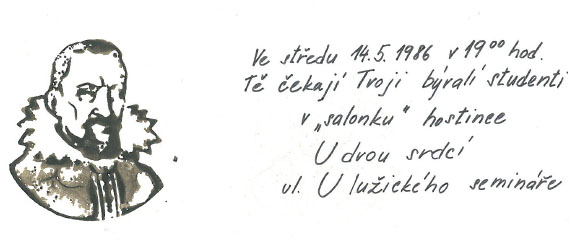 Ve středu 14.5.1986 v 19⁰⁰ hod.
Tě čekají Tvoji bývalí studenti
v „salonku" hostinee
U dvou srdcí
ul. U lužického semináře